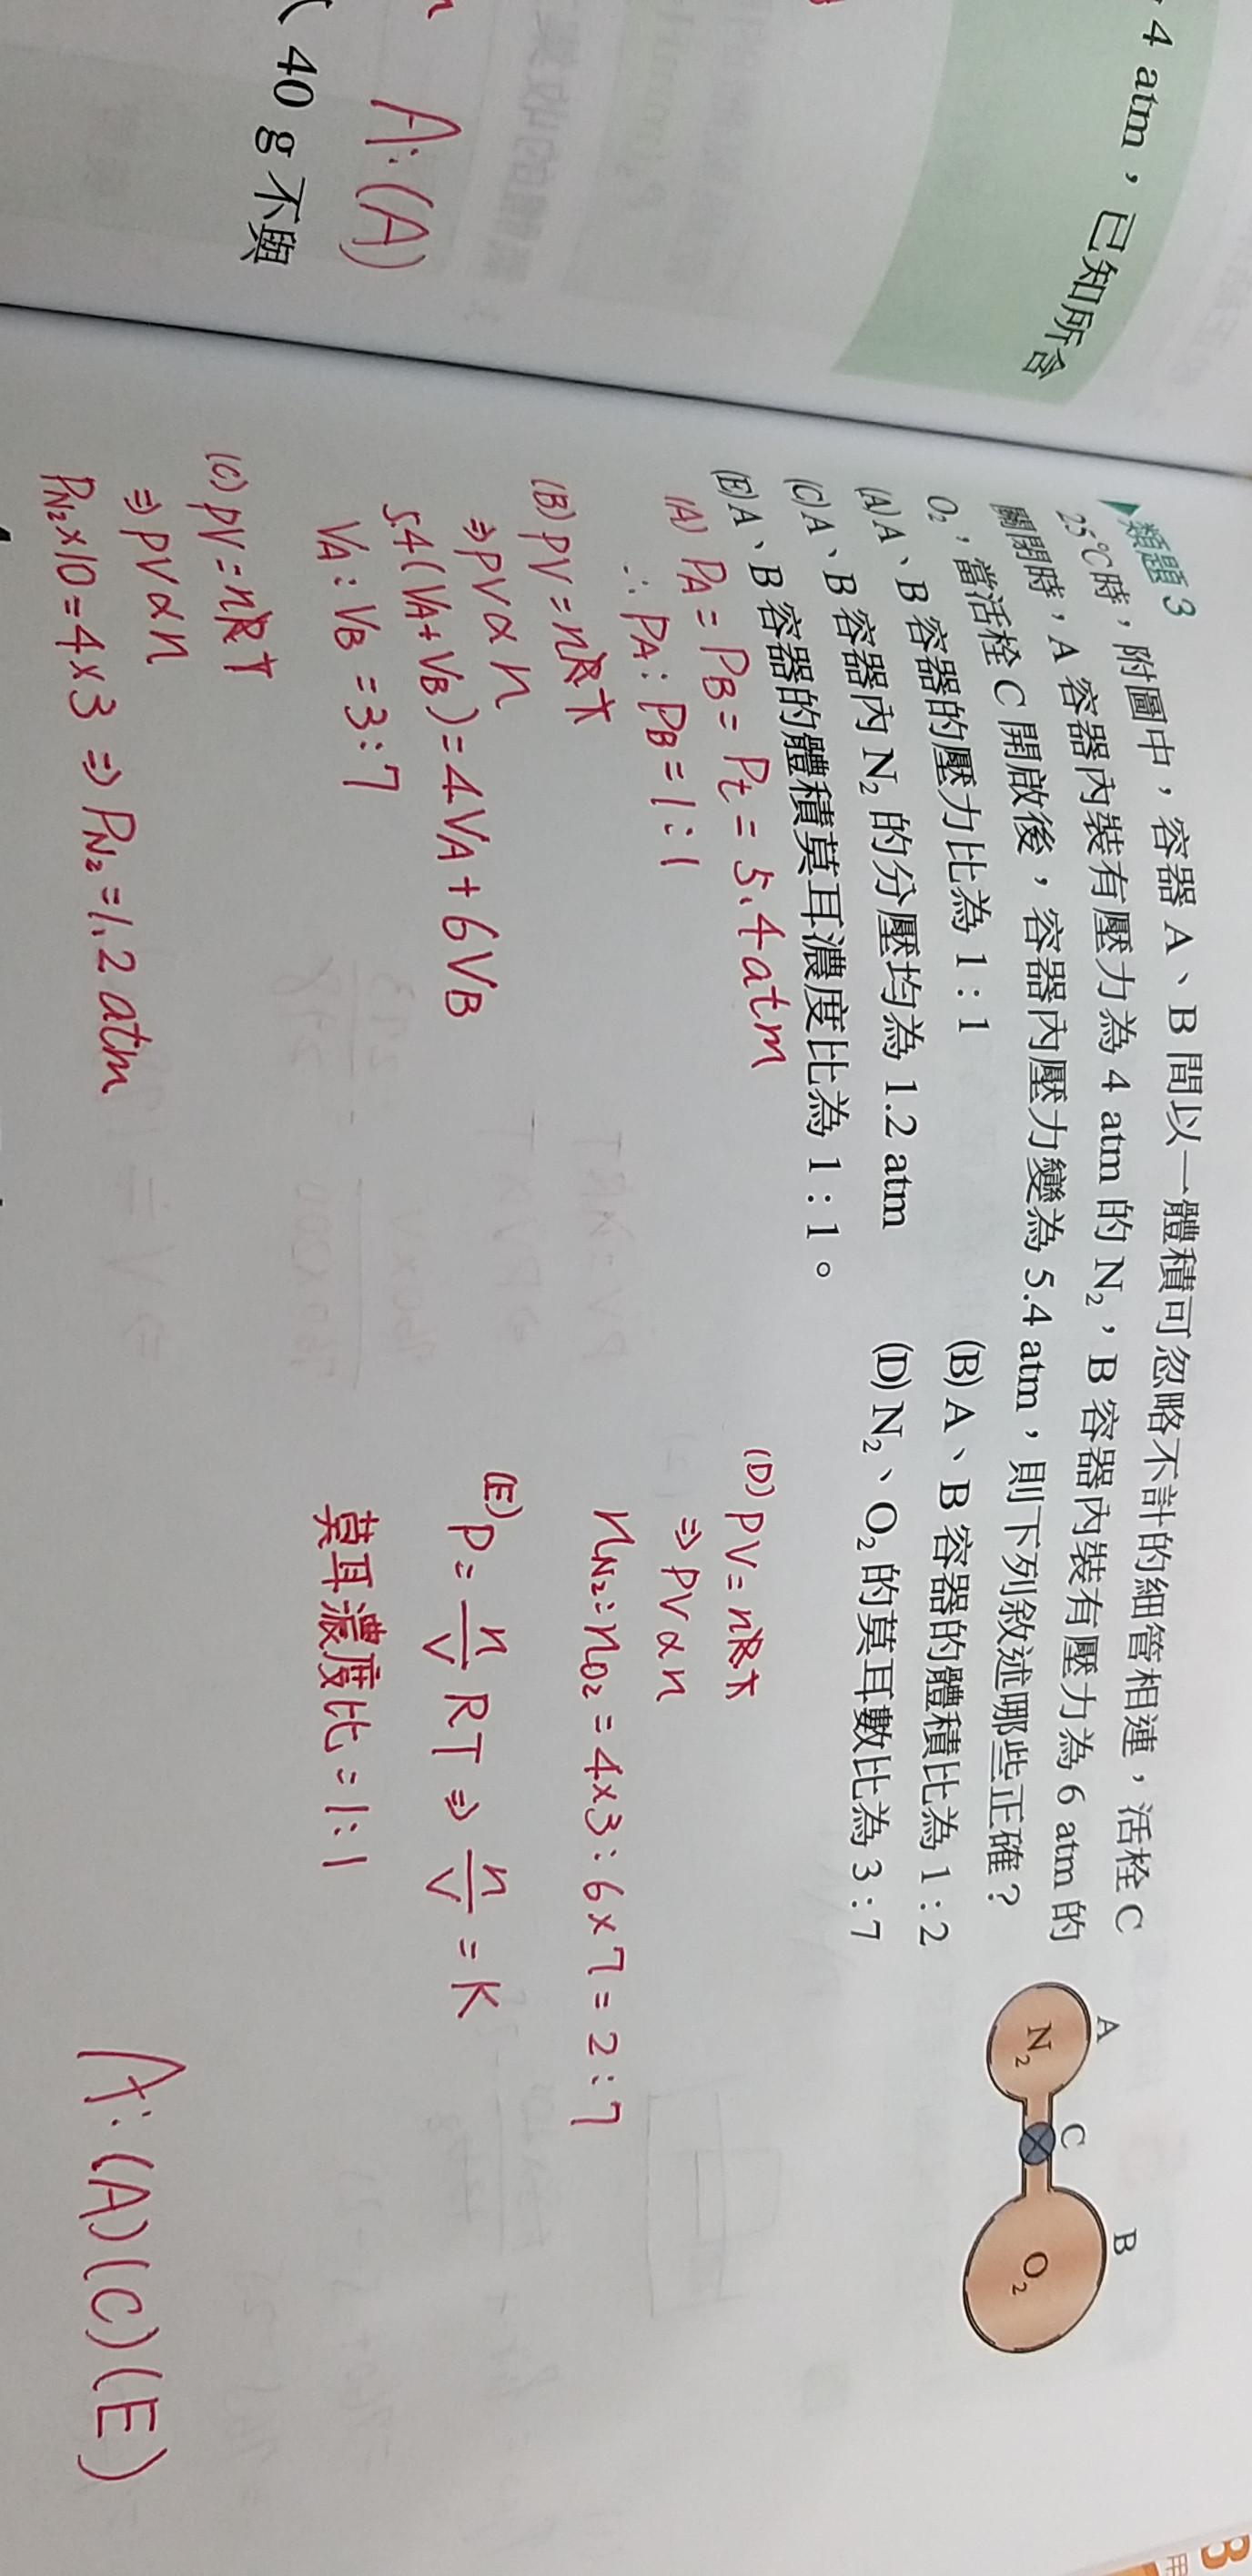 4 atm，已知所含
A:(A)
40 g 不與
類題 3
25℃時，附圖中，容器 A、B 間以一體積可忽略不計的細管相連，活栓 C
關閉時，A 容器內裝有壓力為 4 atm 的 N₂，B 容器內裝有壓力為 6 atm 的
O₂，當活栓 C 開啟後，容器內壓力變為 5.4 atm，則下列敘述哪些正確？
(A) A、B 容器的壓力比為 1：1 (B) A、B 容器的體積比為 1：2
(C) A、B 容器內 N₂ 的分壓均為 1.2 atm (D) N₂、O₂ 的莫耳數比為 3：7
(E) A、B 容器的體積莫耳濃度比為 1：1。
A
N₂
C
B
O₂
(A) PA = PB = Pt = 5.4 atm
∴ PA : PB = 1 : 1
(B) PV = nRT
⇒ PV α n
5.4 (VA + VB) = 4VA + 6VB
VA : VB = 3 : 7
(C) PV = nRT
⇒ PV α n
PN₂ × 10 = 4 × 3 ⇒ PN₂ = 1.2 atm
(D) PV = nRT
⇒ PV α n
nN₂ : nO₂ = 4×3 : 6×7 = 2 : 7
(E) P = n/V RT ⇒ n/V = K
莫耳濃度比 = 1 : 1
A: (A)(C)(E)
3
用